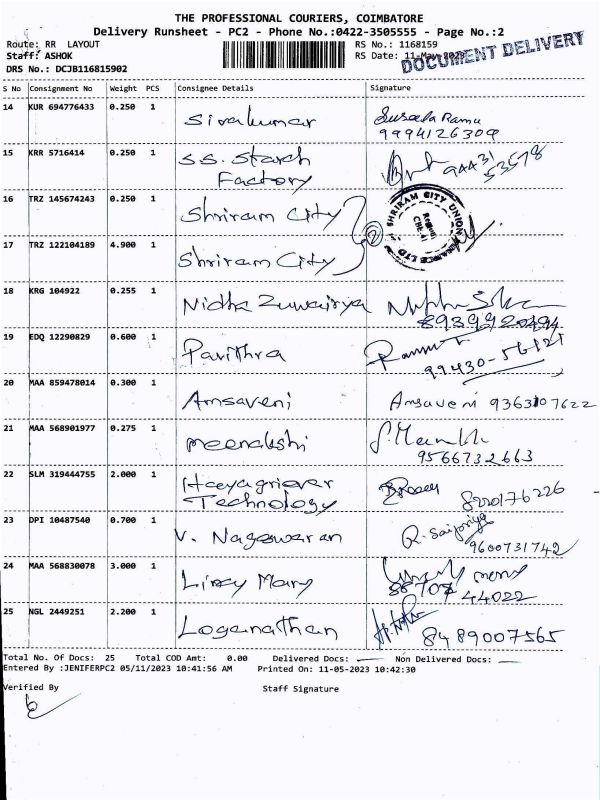 THE PROFESSIONAL COURIERS, COIMBATORE
Delivery Runsheet - PC2 - Phone No.:0422-3505555 - Page No.:2
Route: RR LAYOUT RS No.: 1168159
Staff: ASHOK RS Date: 11-May-2023
DOCUMENT DELIVERY
DRS No.: DCJB116815902
S No Consignment No Weight PCS Consignee Details Signature
14 KUR 694776433 0.250 1 Sivakumar Suseela Ramu
9994126309
15 KRR 5716414 0.250 1 S.S. Starch 94431
Factory 53578
16 TRZ 145674243 0.250 1 Shriram City
SHRIRAM CITY UNION FINANCE LTD
17 TRZ 122104189 4.900 1 Shriram City
2
18 KRG 104922 0.255 1 Nidha Zuwairiya
8939920494
19 EDQ 12290829 0.600 1 Pavithra
99430-56121
20 MAA 859478014 0.300 1 Amsaveni Amsaveni 9363107622
21 MAA 568901977 0.275 1 Meenakshi
9566732663
22 SLM 319444755 2.000 1 Hayagriever
Technology 8220176226
23 DPI 10487540 0.700 1 V. Nageswaran R. Saipriya
9600731742
24 MAA 568830078 3.000 1 Linsy Mary
88707 44022
25 NGL 2449251 2.200 1 Loganathan
8489007565
Total No. Of Docs: 25 Total COD Amt: 0.00 Delivered Docs: Non Delivered Docs:
Entered By :JENIFERPC2 05/11/2023 10:41:56 AM Printed On: 11-05-2023 10:42:30
Verified By Staff Signature